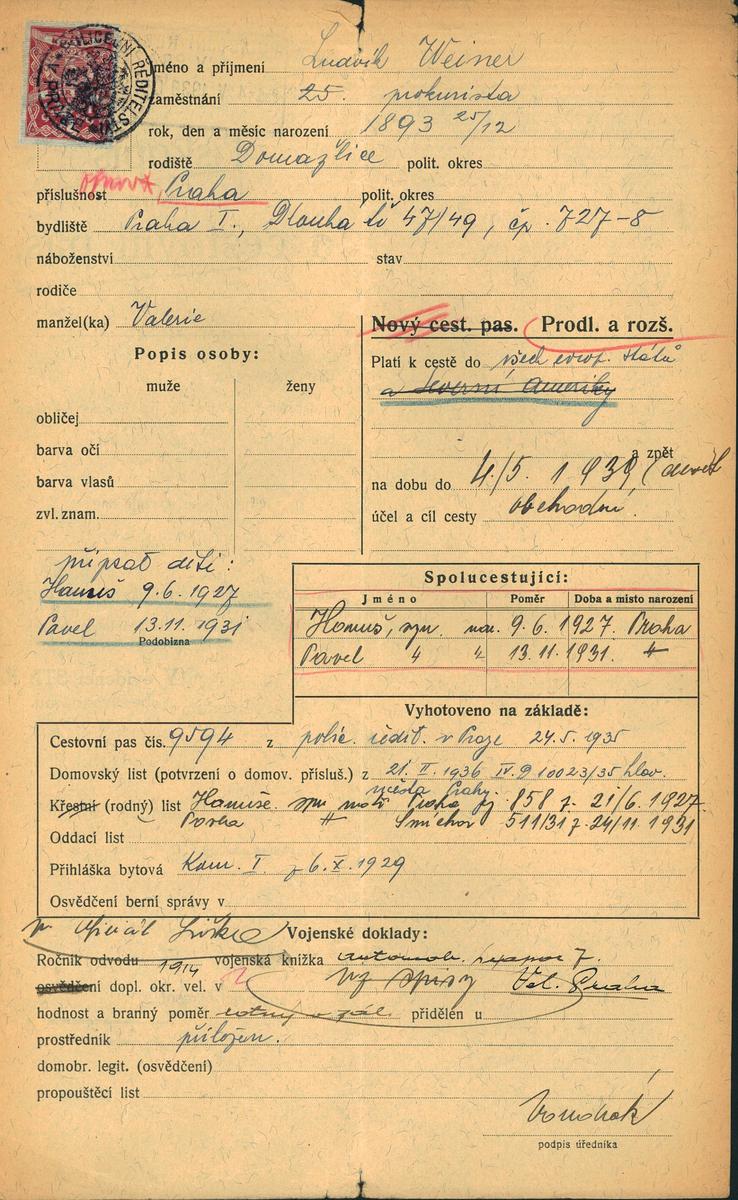 POLICEJNÍ ŘEDITELSTVÍ
jméno a příjmení Ludvík Weiner
zaměstnání 25. prokurista
rok, den a měsíc narození 1893 25/12
rodiště Domažlice polit. okres
příslušnost Praha polit. okres
bydliště Praha I., Dlouhá tř 47/49, čp. 727-8
náboženství stav
rodiče
manžel(ka) Valerie
Nový cest. pas. Prodl. a rozš.
Popis osoby:
Platí k cestě do všech evrop. států
muže ženy
a Severní Ameriky
obličej
barva očí
a zpět
barva vlasů
na dobu do 4./5. 1939
zvl. znam.
účel a cíl cesty obchodní.
připsat děti:
Hanuš 9.6.1927
Pavel 13.11.1931
Podobizna
Spolucestující:
Jméno Poměr Doba a místo narození
Hanuš, syn nar. 9.6.1927. Praha
Pavel " " 13.11.1931. "
Vyhotoveno na základě:
Cestovní pas čís. 9594 z polic. ředit. v Praze 24.5.1935
Domovský list (potvrzení o domov. přísluš.) z 21. II. 1936 IV. D 10023/35 hlav.
města Prahy.
Křestní (rodný) list Hanuše Praha 858 z. 21/6. 1927.
Pavla " Smíchov 511/31 z. 24/11. 1931
Oddací list
Přihláška bytová Kom. I. z 6.X.1929
Osvědčení berní správy v
Vojenské doklady:
Ročník odvodu 1914 vojenská knížka automob.
osvědčení dopl. okr. vel. v Vel. Praha
hodnost a branný poměr v zál. přidělen u
prostředník přiložen.
domobr. legit. (osvědčení)
propouštěcí list
podpis úředníka